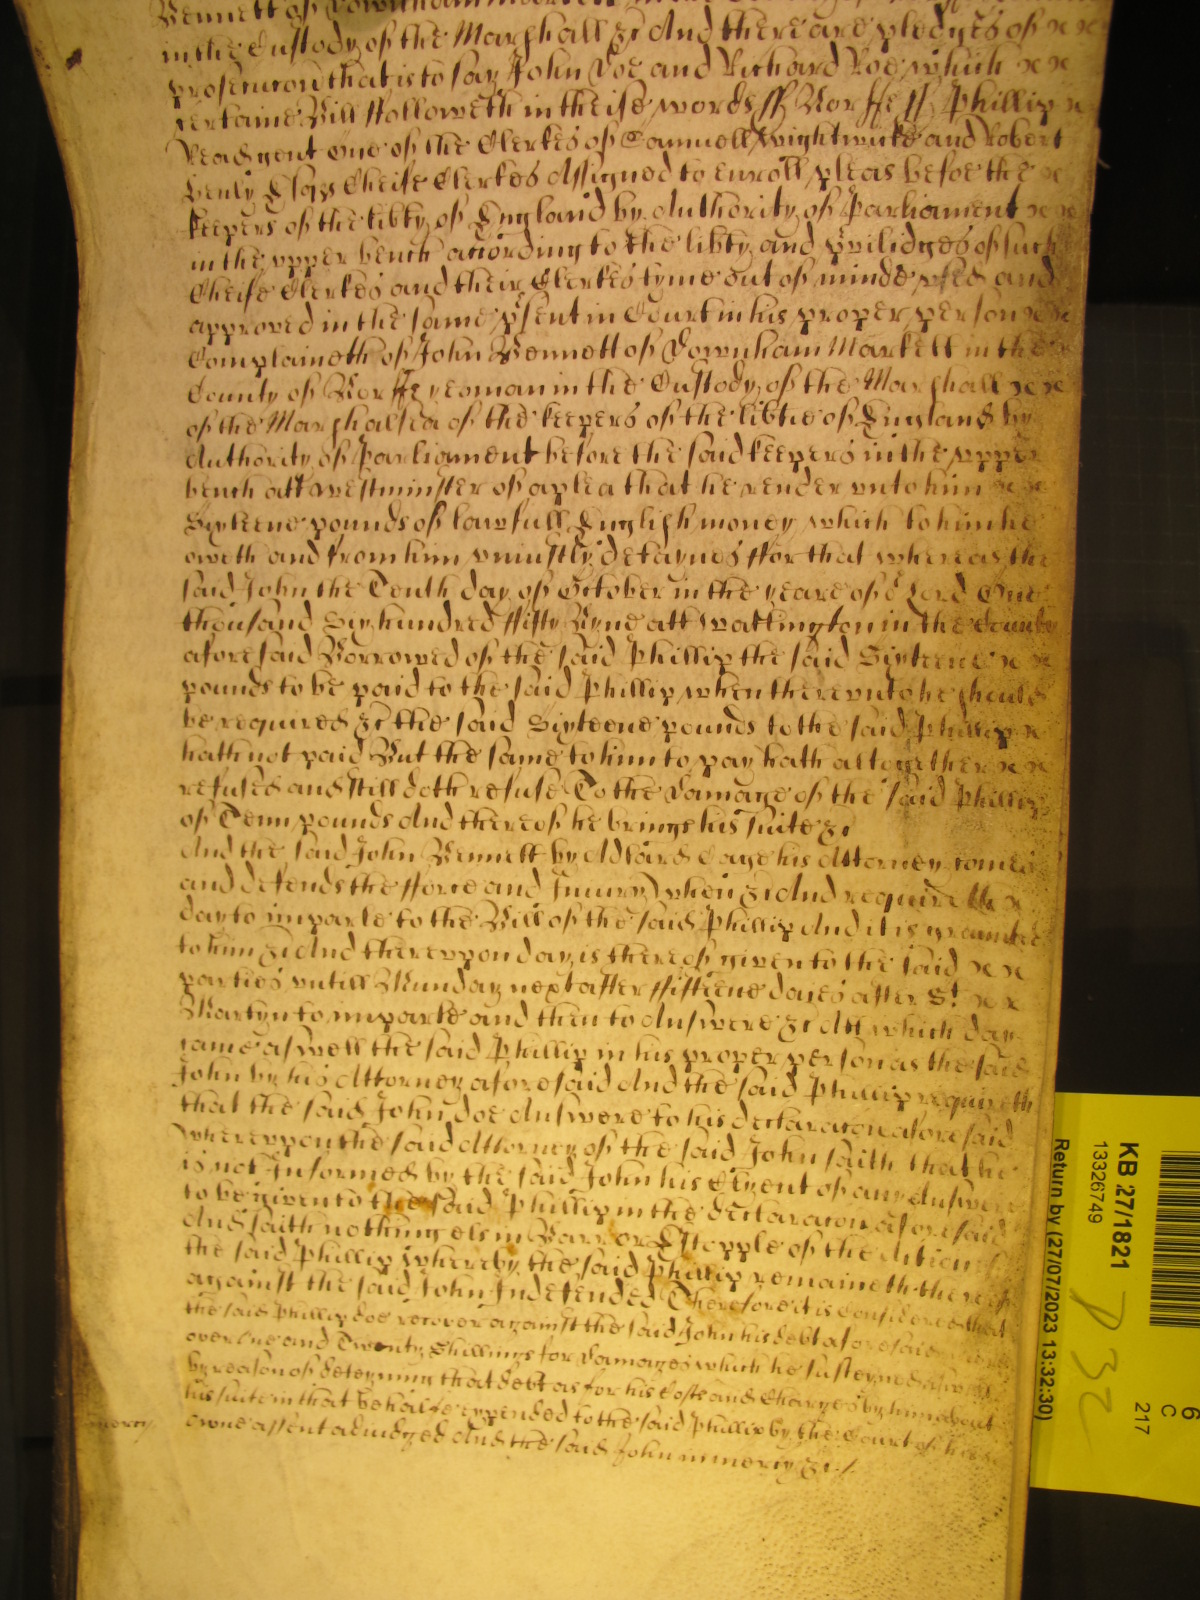 Bennett of Downham Markett in the County of
in the Custody of the Marshall &c And there are pledges of x x
prosecucon that is to say John Doe and Richard Roe which x x
certaine Bill ffolloweth in theise wordes ss Norff ss Phillip x
Read gent One of the Clerkes of Samuell Wightwicke and Robert
Henly Esqrs Cheife Clerkes Assigned to enroll pleas before the x
keepers of the libty of England by Authority of Parliament x x
in the vpper bench according to the libty and privilidges of such
Cheife Clerkes and their Clerkes tyme out of minde vsed and
approved in the same psent in Court in his proper person x x
Complaineth of John Bennett of Downham Markett in the
County of Norff yeoman in the Custody of the Marshall x x
of the Marshalsea of the keepers of the libtie of England by
Authority of Parliament before the said keepers in the vpper
bench att Westminster of a plea that he render vnto him x x
Sixteene pounds of lawfull English money which to him he
oweth and from him vniustly detaynes ffor that whereas the
said John the Tenth day of October in the yeare of or Lord One
thousand Six hundred ffifty Nyne att Wattington in the County
aforesaid Borrowed of the said Phillip the said Sixteene x x
pounds to be paid to the said Phillip when therevnto he should
be required &c the said Sixteene pounds to the said Phillip x
hath not paid But the same to him to pay hath altogether x x
refused and still doth refuse To the Damage of the said Phillip
of Tenn pounds And thereof he brings his suite &c
And the said John Bennett by Edward Cage his Attorney comes
and defends the fforce and Iniury when &c And requireth x
day to imparle to the Bill of the said Phillip And it is graunted
to him &c And therevpon day is thereof given to the said x x
parties vntill Munday next after ffifteene dayes after St x x
Martyn to imparle and then to Answere &c Att which day
came aswell the said Phillip in his proper person as the said
John by his Attorney aforesaid And the said Phillip requireth
that the said John doe Answere to his declaracon aforesaid
Wherevpon the said Attorney of the said John saith that he
is not Informed by the said John his Clyent of any Answere
to be given to the said Phillip in the declaracon aforesaid
And saith nothing els in Barr or Estopple of the Accion of
the said Phillip whereby the said Phillip remaineth thereof
against the said John Indefended Therefore it is Considered that
the said Phillip doe recover against the said John his debt aforesaid
over One and Twenty Shillings for Damages which he susteyned aswell
by reason of deteyning that debt as for his Costs and Charges by him about
his suite in that behalfe expended to the said Phillip by the Court of his
owne assent adiudged And the said John in mercy &c ./.
mercy
KB 27/1821
13326749
Return by (27/07/2023 13:32:30)
6
C
217